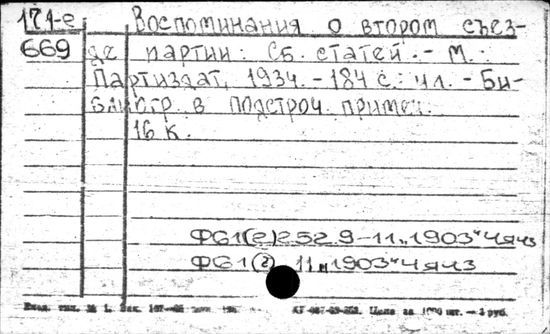 171-е Воспоминания о втором съез-
669 де партии: Сб. статей. - М.:
Партиздат, 1934. - 184 с.: ил. - Би-
блиогр. в подстроч. примеч.
16 к.
ФБ1(2)252.9-11„1903"Чячз
ФБ1(2) 11„1903"Чячз
Цена за 1000 шт. — 3 руб.